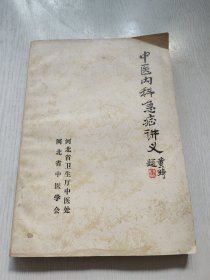 中医内科急症讲义
黄辉题
河北省卫生厅中医处
河北省中医学会